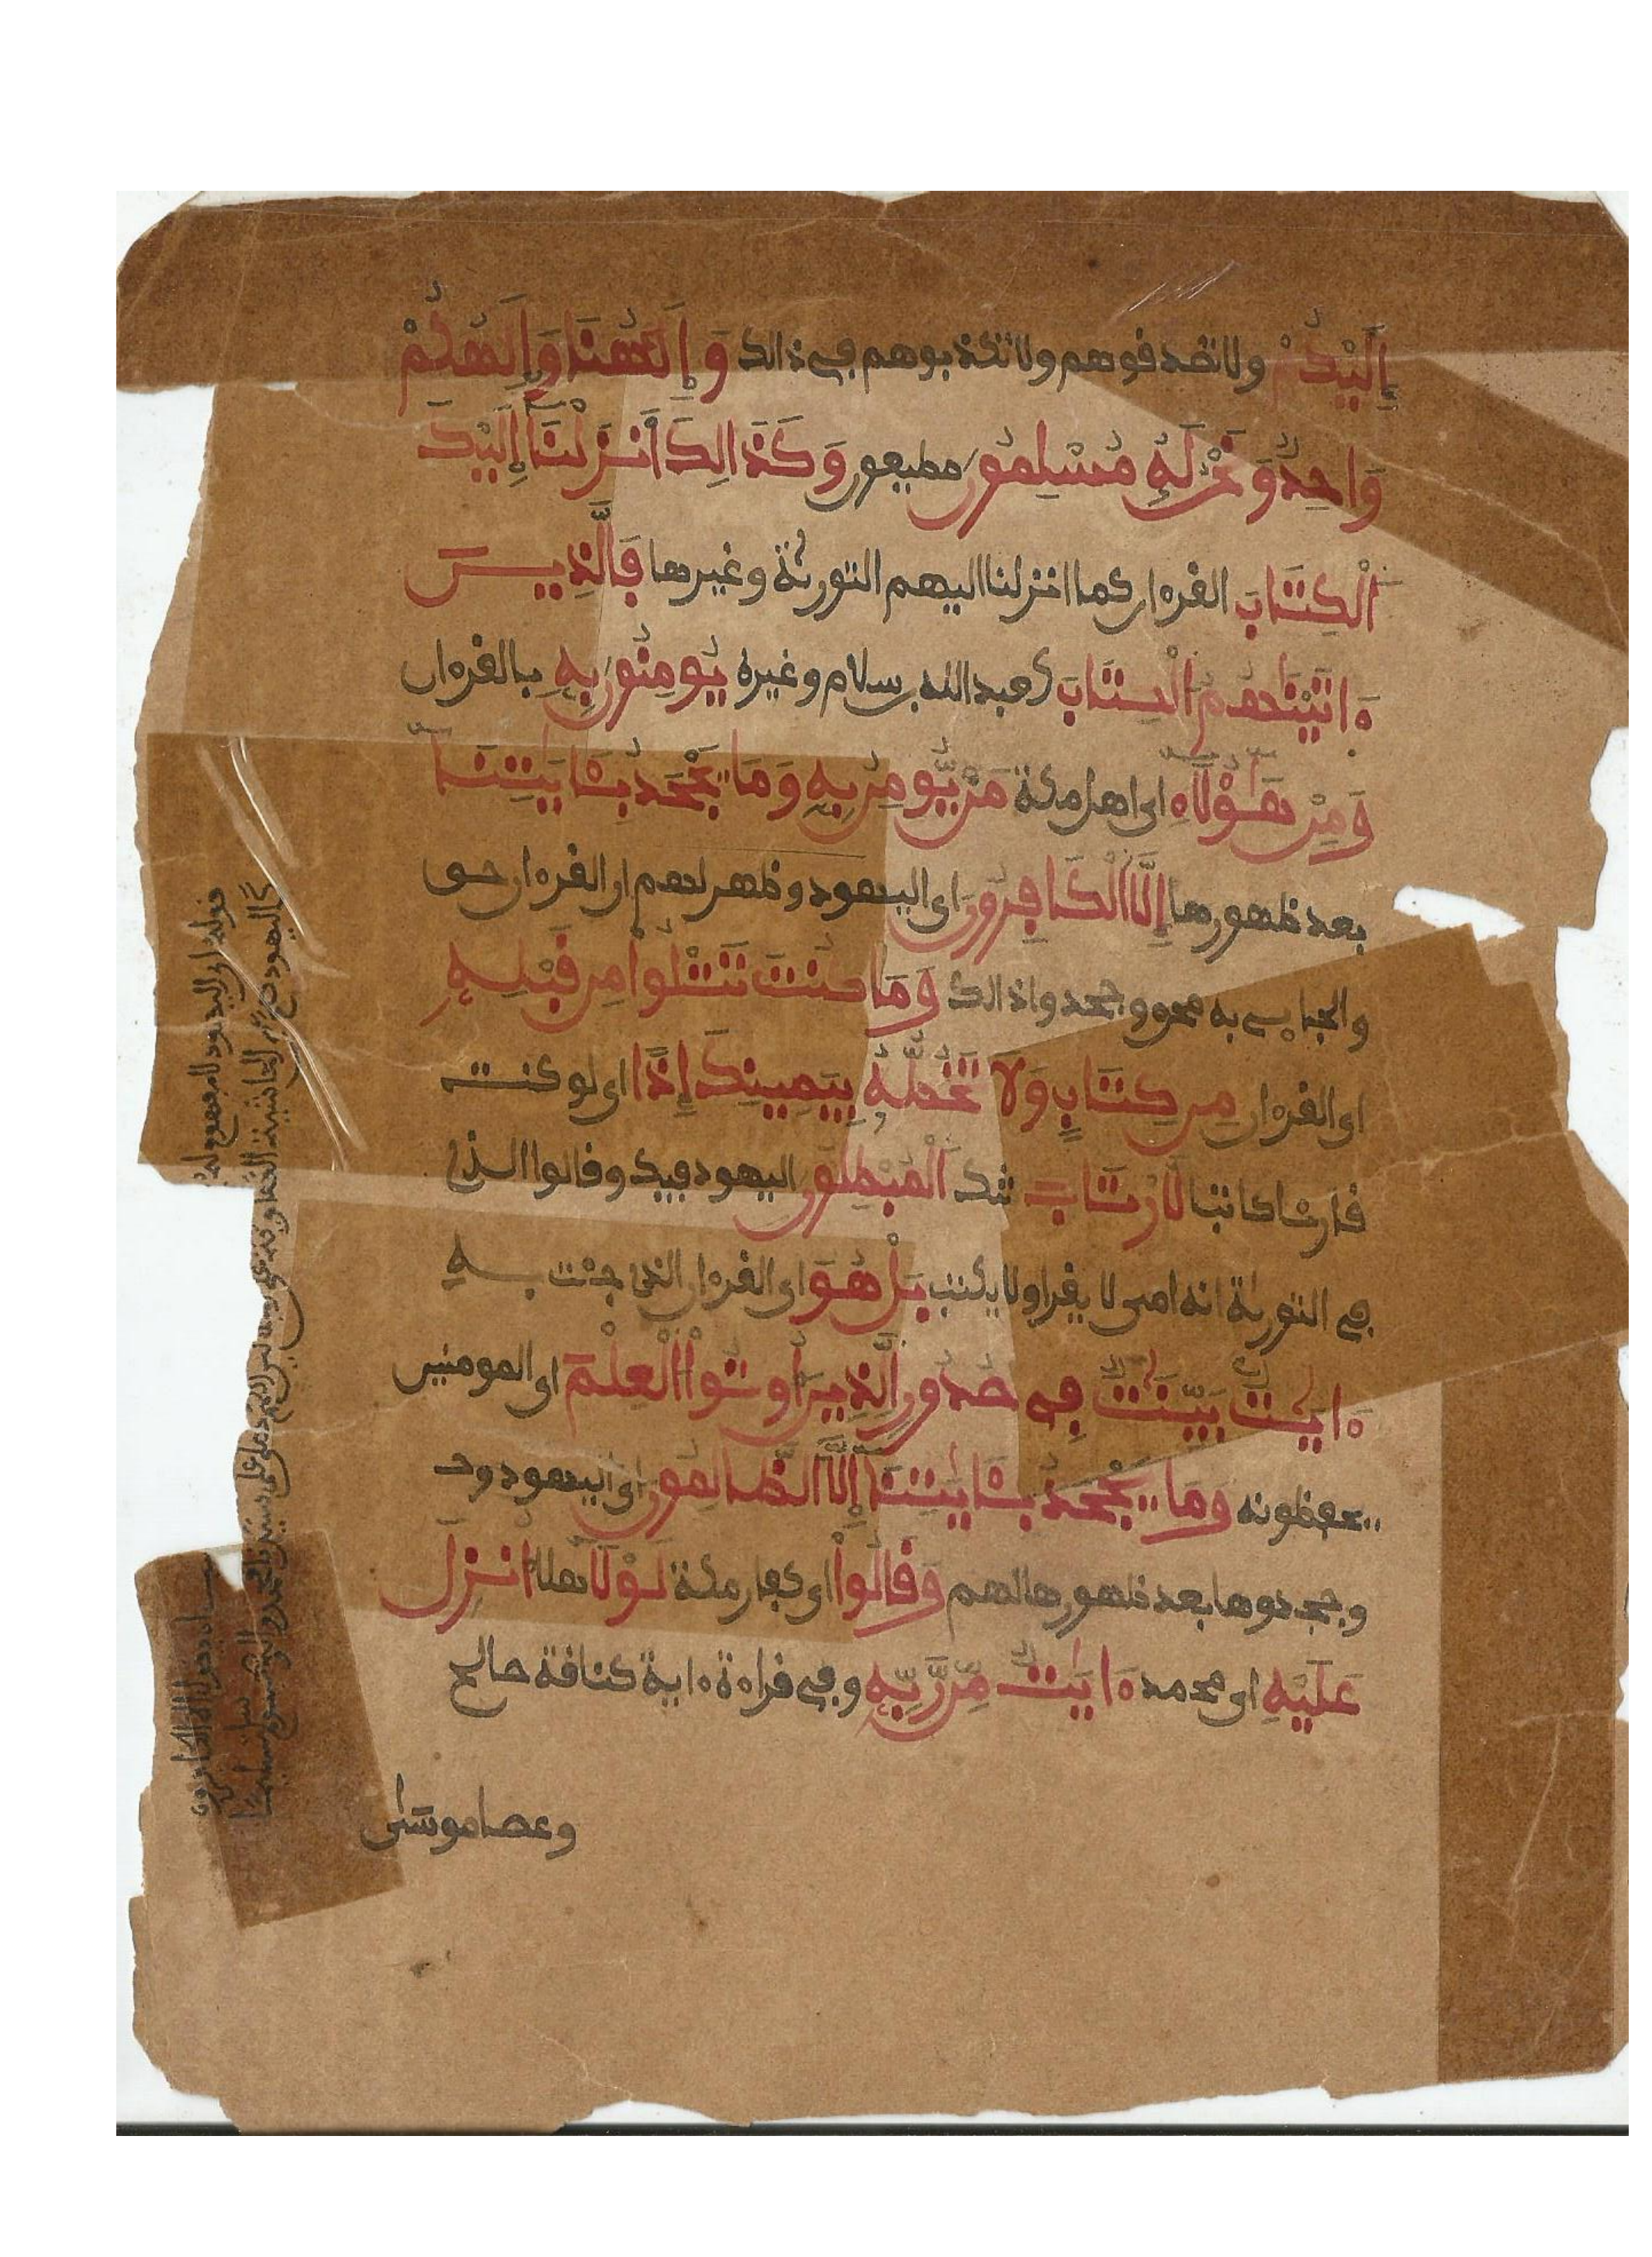 إِلَيْكُمْ ولا تصدقوهم ولا تكذبوهم في ذالك وَإِلَهُنَا وَإِلَهُكُمْ
وَاحِدٌ وَنَحْنُ لَهُ مُسْلِمُونَ مطيعون وَكَذَالِكَ أَنْزَلْنَا إِلَيْكَ
الْكِتَابَ القرءان كما انزلنا اليهم التورية وغيرها فَالَّذِينَ
ءَاتَيْنَاهُمُ الْكِتَابَ كعبد الله بن سلام وغيره يُومِنُونَ بِهِ بالقرءان
وَمِنْ هَؤُلَاءِ اى اهل مكة مَنْ يُّومِنُ بِهِ وَمَا يَجْحَدُ بِـَٔايَتِنَا
بعد ظهورها إِلَّا الْكَافِرُونَ اى اليهود وظهر لهم ان القرءان حق
والجاىٔي به محق وجحدوا ذالك وَمَا كُنْتَ تَتْلُوا مِنْ قَبْلِهِ
اى القرءان مِن كِتَابٍ وَلَا تَخُطُّهُ بِيَمِينِكَ إِذًا اى لو كنت
قارئا كاتبا لَّارْتَابَ شك الْمُبْطِلُونَ اليهود فيك وقالوا الذى
في التورية انه امى لا يقرا ولا يكتب بَلْ هُوَ اى القرءان الذى جئت به
ءَايَتٌ بَيِّنَتٌ فِي صُدُورِ الَّذِينَ أُوتُوا الْعِلْمَ اى المومنين
يحفظونه وَمَا يَجْحَدُ بِـَٔايَتِنَا إِلَّا الظَّالِمُونَ اى اليهود وحـ
وجحدوها بعد ظهورها لهم وَقَالُوا اى كفار مكة لَوْلَا هلا أُنْزِلَ
عَلَيْهِ اى محمد ءَايَتٌ مِّن رَّبِّهِ وفي قراءة ءاية كناقة صالح
وعصا موسى
قوله اى اليهود
كاليهود
قوله الا الكافرون